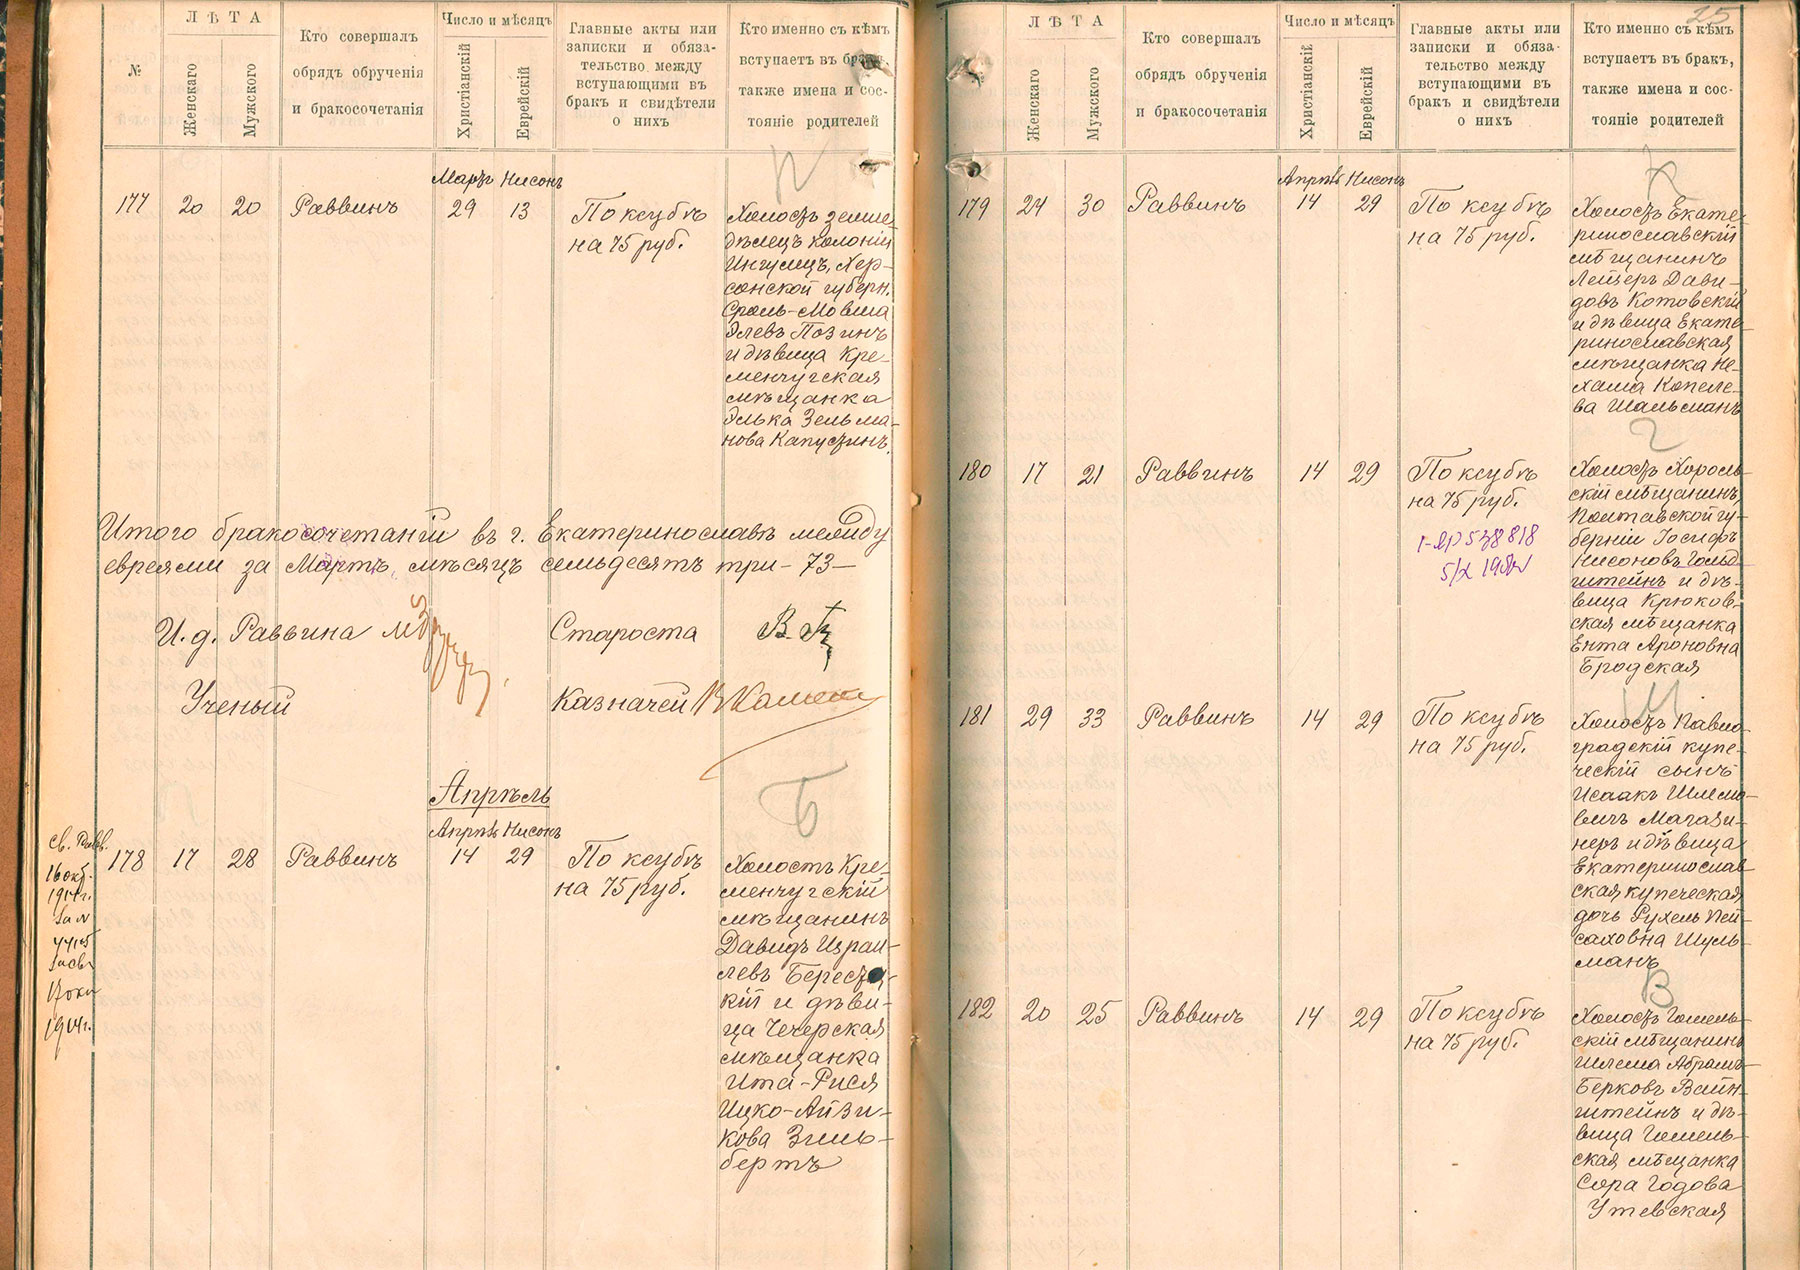 №
ЛѢТА
Женскаго
Мужского
Кто совершалъ
обрядъ обрученія
и бракосочетанія
Число и мѣсяцъ
Христіанскій
Еврейскій
Главные акты или
записки и обяза-
тельство между
вступающими въ
бракъ и свидѣтели
о нихъ
Кто именно съ кѣмъ
вступаетъ въ бракъ,
также имена и сос-
тояніе родителей
П
Мартъ Нисонъ
177 20 20 Раввинъ 29 13
По ксубѣ
на 75 руб.
Холостъ земле-
дѣлецъ колоніи
Ингулецъ, Хер-
сонской губерн.
Сроль-Мовша
Элевъ Позинъ
и дѣвица Кре-
менчугская
мѣщанка
Элька Зельма-
нова Капустинъ.
Итого бракосочетаній въ г. Екатеринославѣ между
евреями за Мартъ мѣсяцъ семьдесятъ три - 73 -
И. д. Раввина
Староста
Ученый
Казначей
Апрѣль
Апрѣль Нисонъ
Б
св. Равв.
16 окт.
1914г.
17 окт
1914г.
178 17 28 Раввинъ 14 29
По ксубѣ
на 75 руб.
Холостъ Кре-
менчугскій
мѣщанинъ
Давидъ Израи-
левъ Берестец-
кій и дѣви-
ца Чечерская
мѣщанка
Ита-Рися
Ицко-Айзи-
кова Зиль-
бертъ
25
ЛѢТА
Женскаго
Мужского
Кто совершалъ
обрядъ обрученія
и бракосочетанія
Число и мѣсяцъ
Христіанскій
Еврейскій
Главные акты или
записки и обяза-
тельство между
вступающими въ
бракъ и свидѣтели
о нихъ
Кто именно съ кѣмъ
вступаетъ въ бракъ,
также имена и сос-
тояніе родителей
К
Апрѣль Нисонъ
179 24 30 Раввинъ 14 29
По ксубѣ
на 75 руб.
Холостъ Екате-
ринославскій
мѣщанинъ
Лейзеръ Дави-
довъ Котовскій
и дѣвица Екате-
ринославская
мѣщанка Не-
хама Копеле-
ва Шальманъ
Г
180 17 21 Раввинъ 14 29
По ксубѣ
на 75 руб.
Холостъ Хороль-
скій мѣщанинъ,
Полтавской гу-
берніи Іосифъ
Нисоновъ Гольд-
штейнъ и дѣ-
вица Крюков-
ская мѣщанка
Ента Ароновна
Бродская
Ш
181 29 33 Раввинъ 14 29
По ксубѣ
на 75 руб.
Холостъ Павло-
градскій купе-
ческій сынъ
Исаакъ Шлемо-
вичъ Магази-
неръ и дѣвица
Екатеринослав-
ская купеческая
дочь Рухель Пей-
саховна Шуль-
манъ
В
182 20 25 Раввинъ 14 29
По ксубѣ
на 75 руб.
Холостъ Гомель-
скій мѣщанинъ
Шлема Абрамъ-
Берковъ Вайн-
штейнъ и дѣ-
вица Гомель-
ская мѣщанка
Сора Годова
Утевская